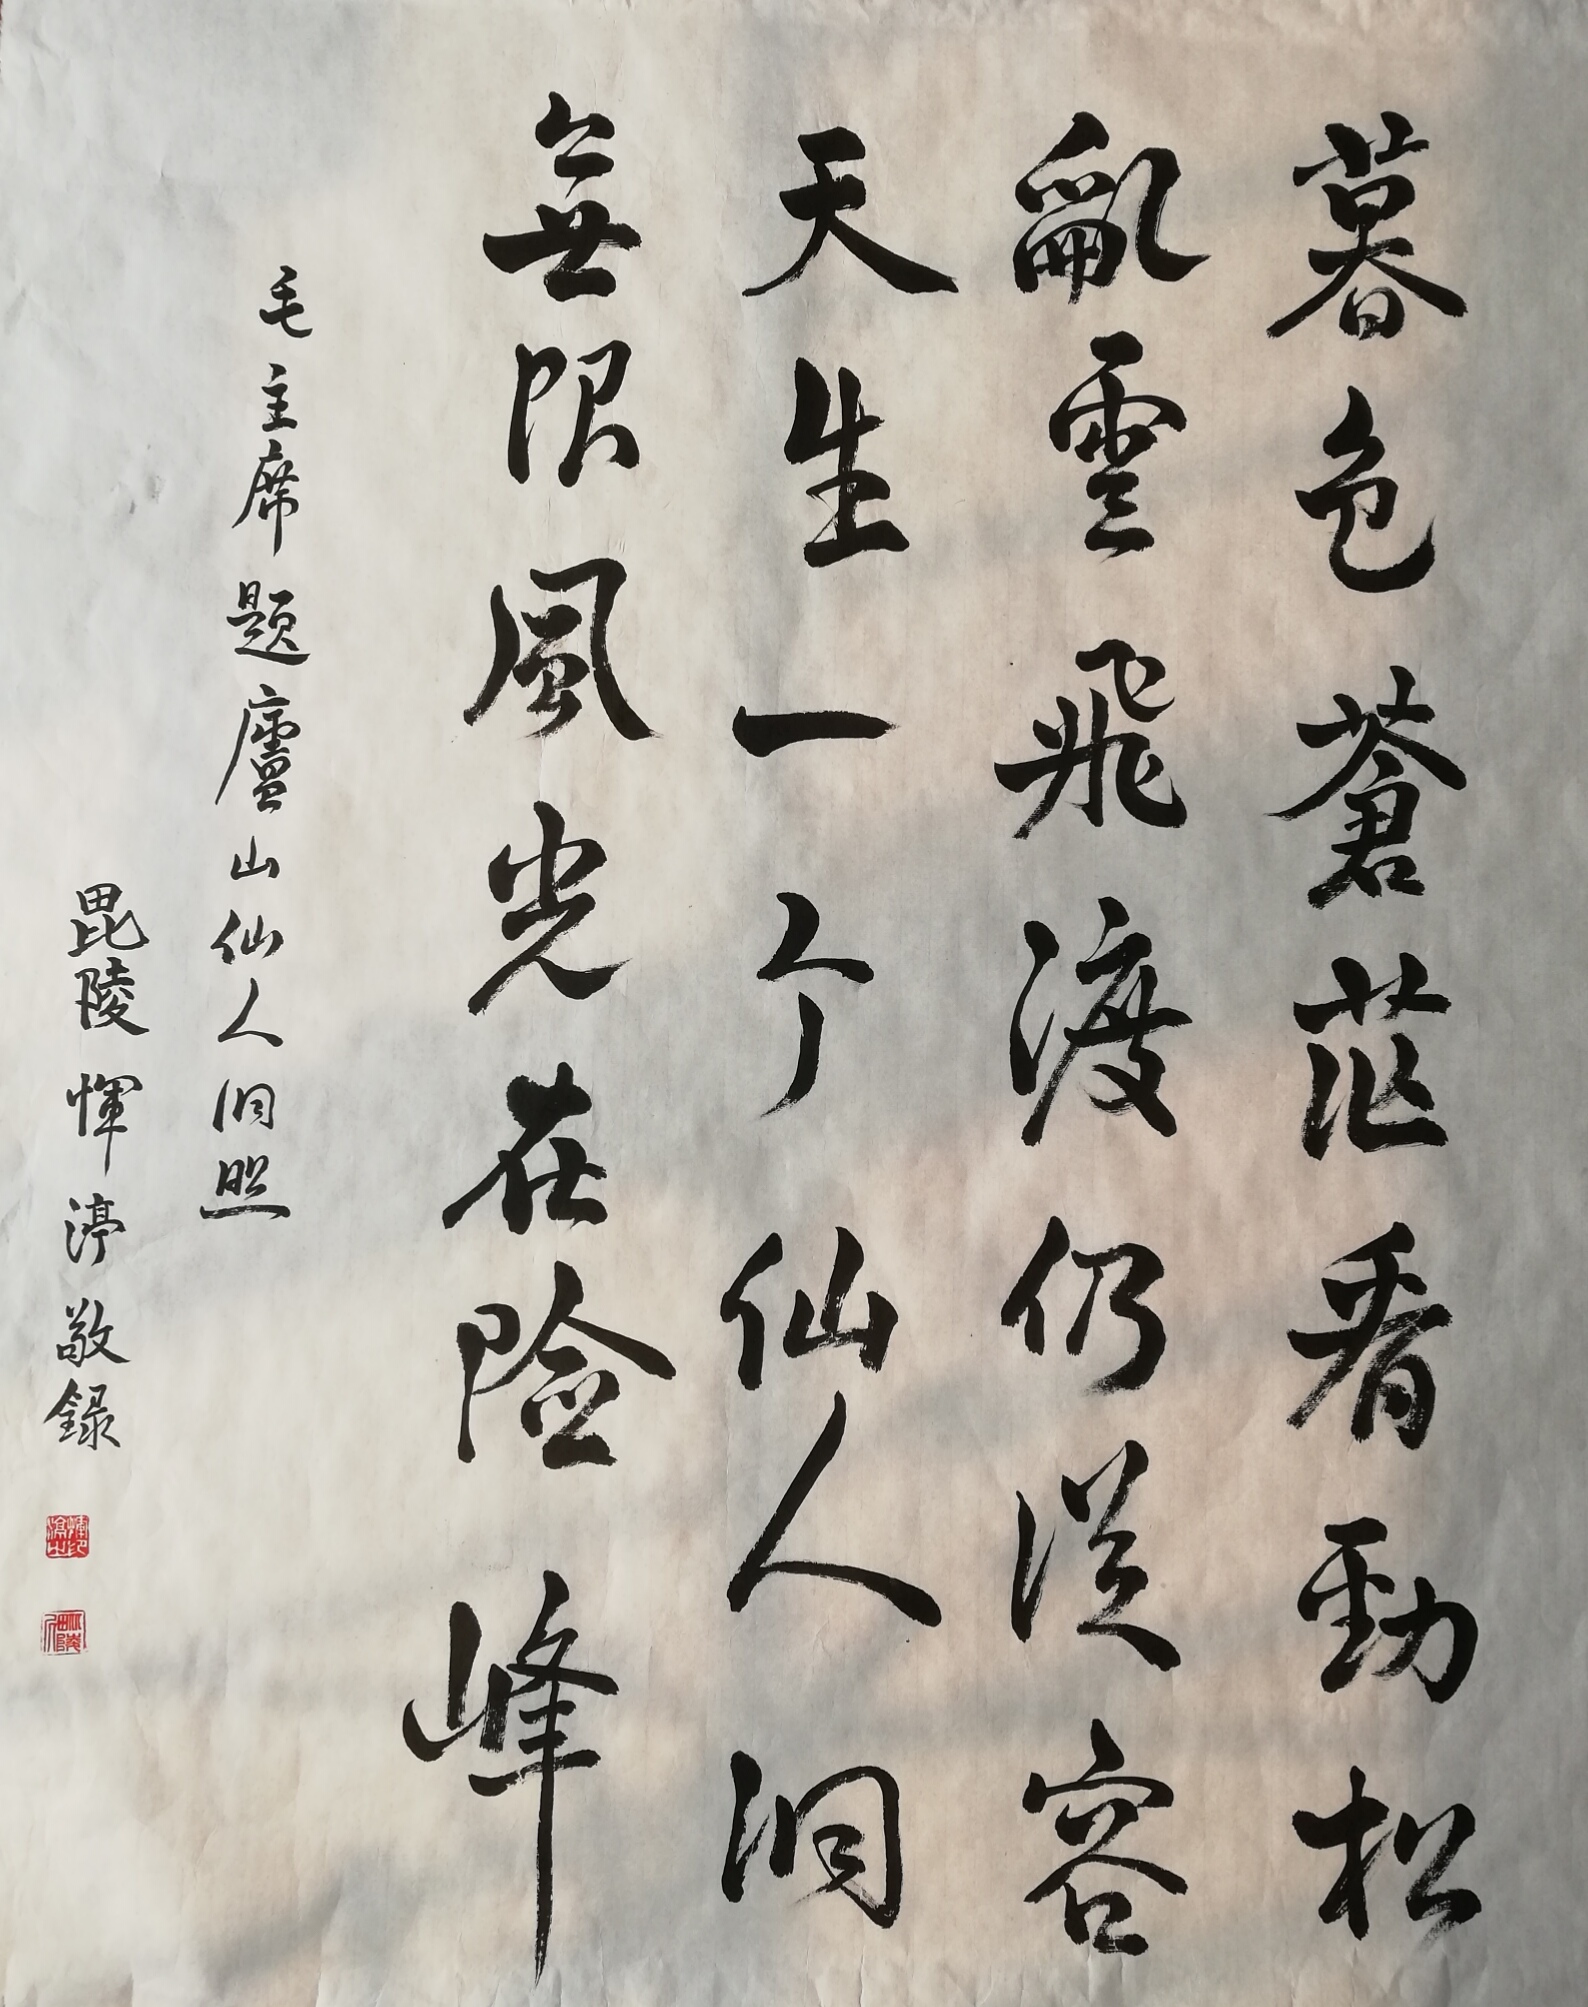 暮色蒼茫看勁松
亂雲飛渡仍從容
天生一个仙人洞
無限風光在險峰
毛主席题廬山仙人洞照
毘陵惲渟敬録